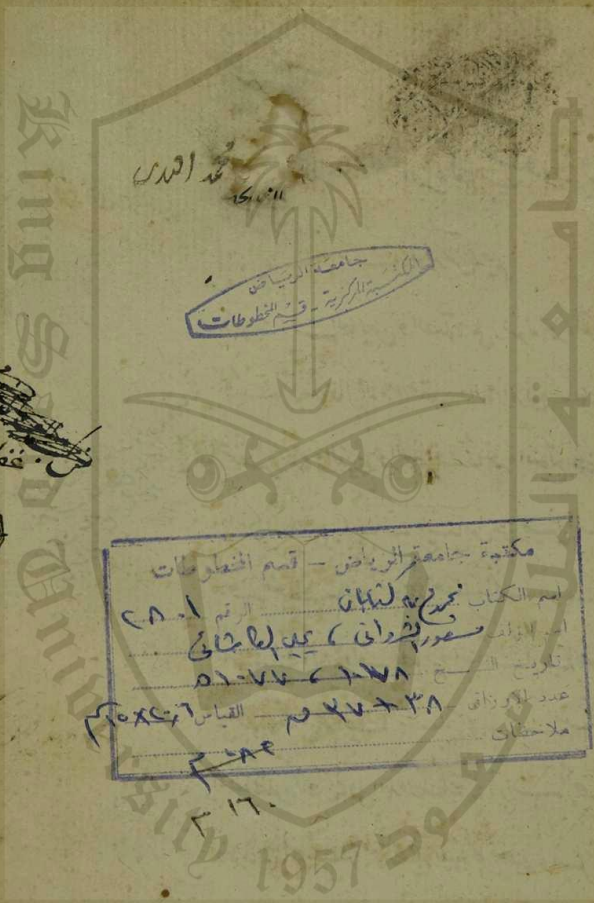 محمد اهدى
جامعة الرياض
المكتبة المركزية - قسم المخطوطات
مكتبة جامعة الرياض - قسم المخطوطات
اسم الكتاب مجموع به كتابان الرقم ٢٨٠١
اسم المؤلف مسعود الشرواني ، يحيى الكاشاني
تاريخ النسخ ١٠٧٨ ، ١٠٧٧ه
عدد الأوراق ٣٨ + ٣٧ ق القياس
ملاحظات
١٦٠ م
King Saud University
جامعة الملك سعود
1957